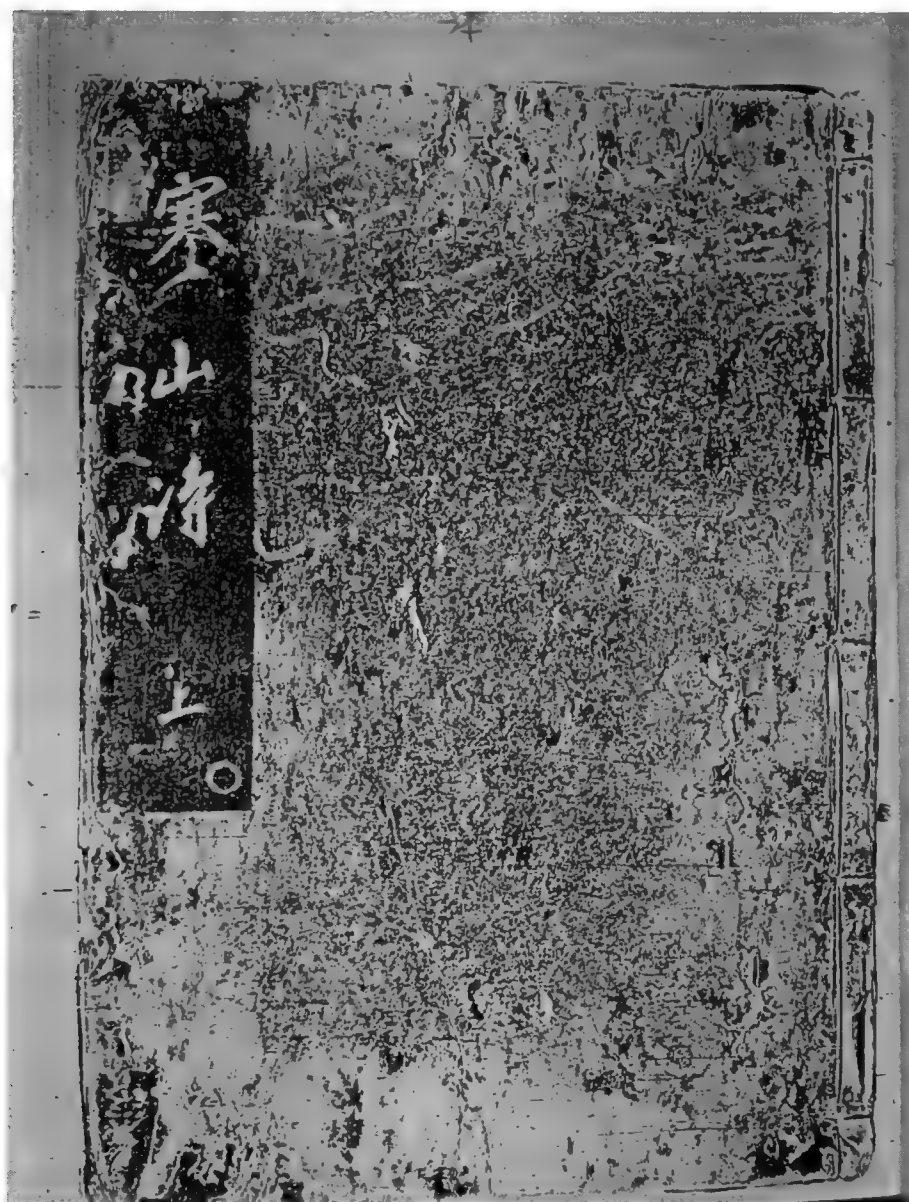 寒山詩 上